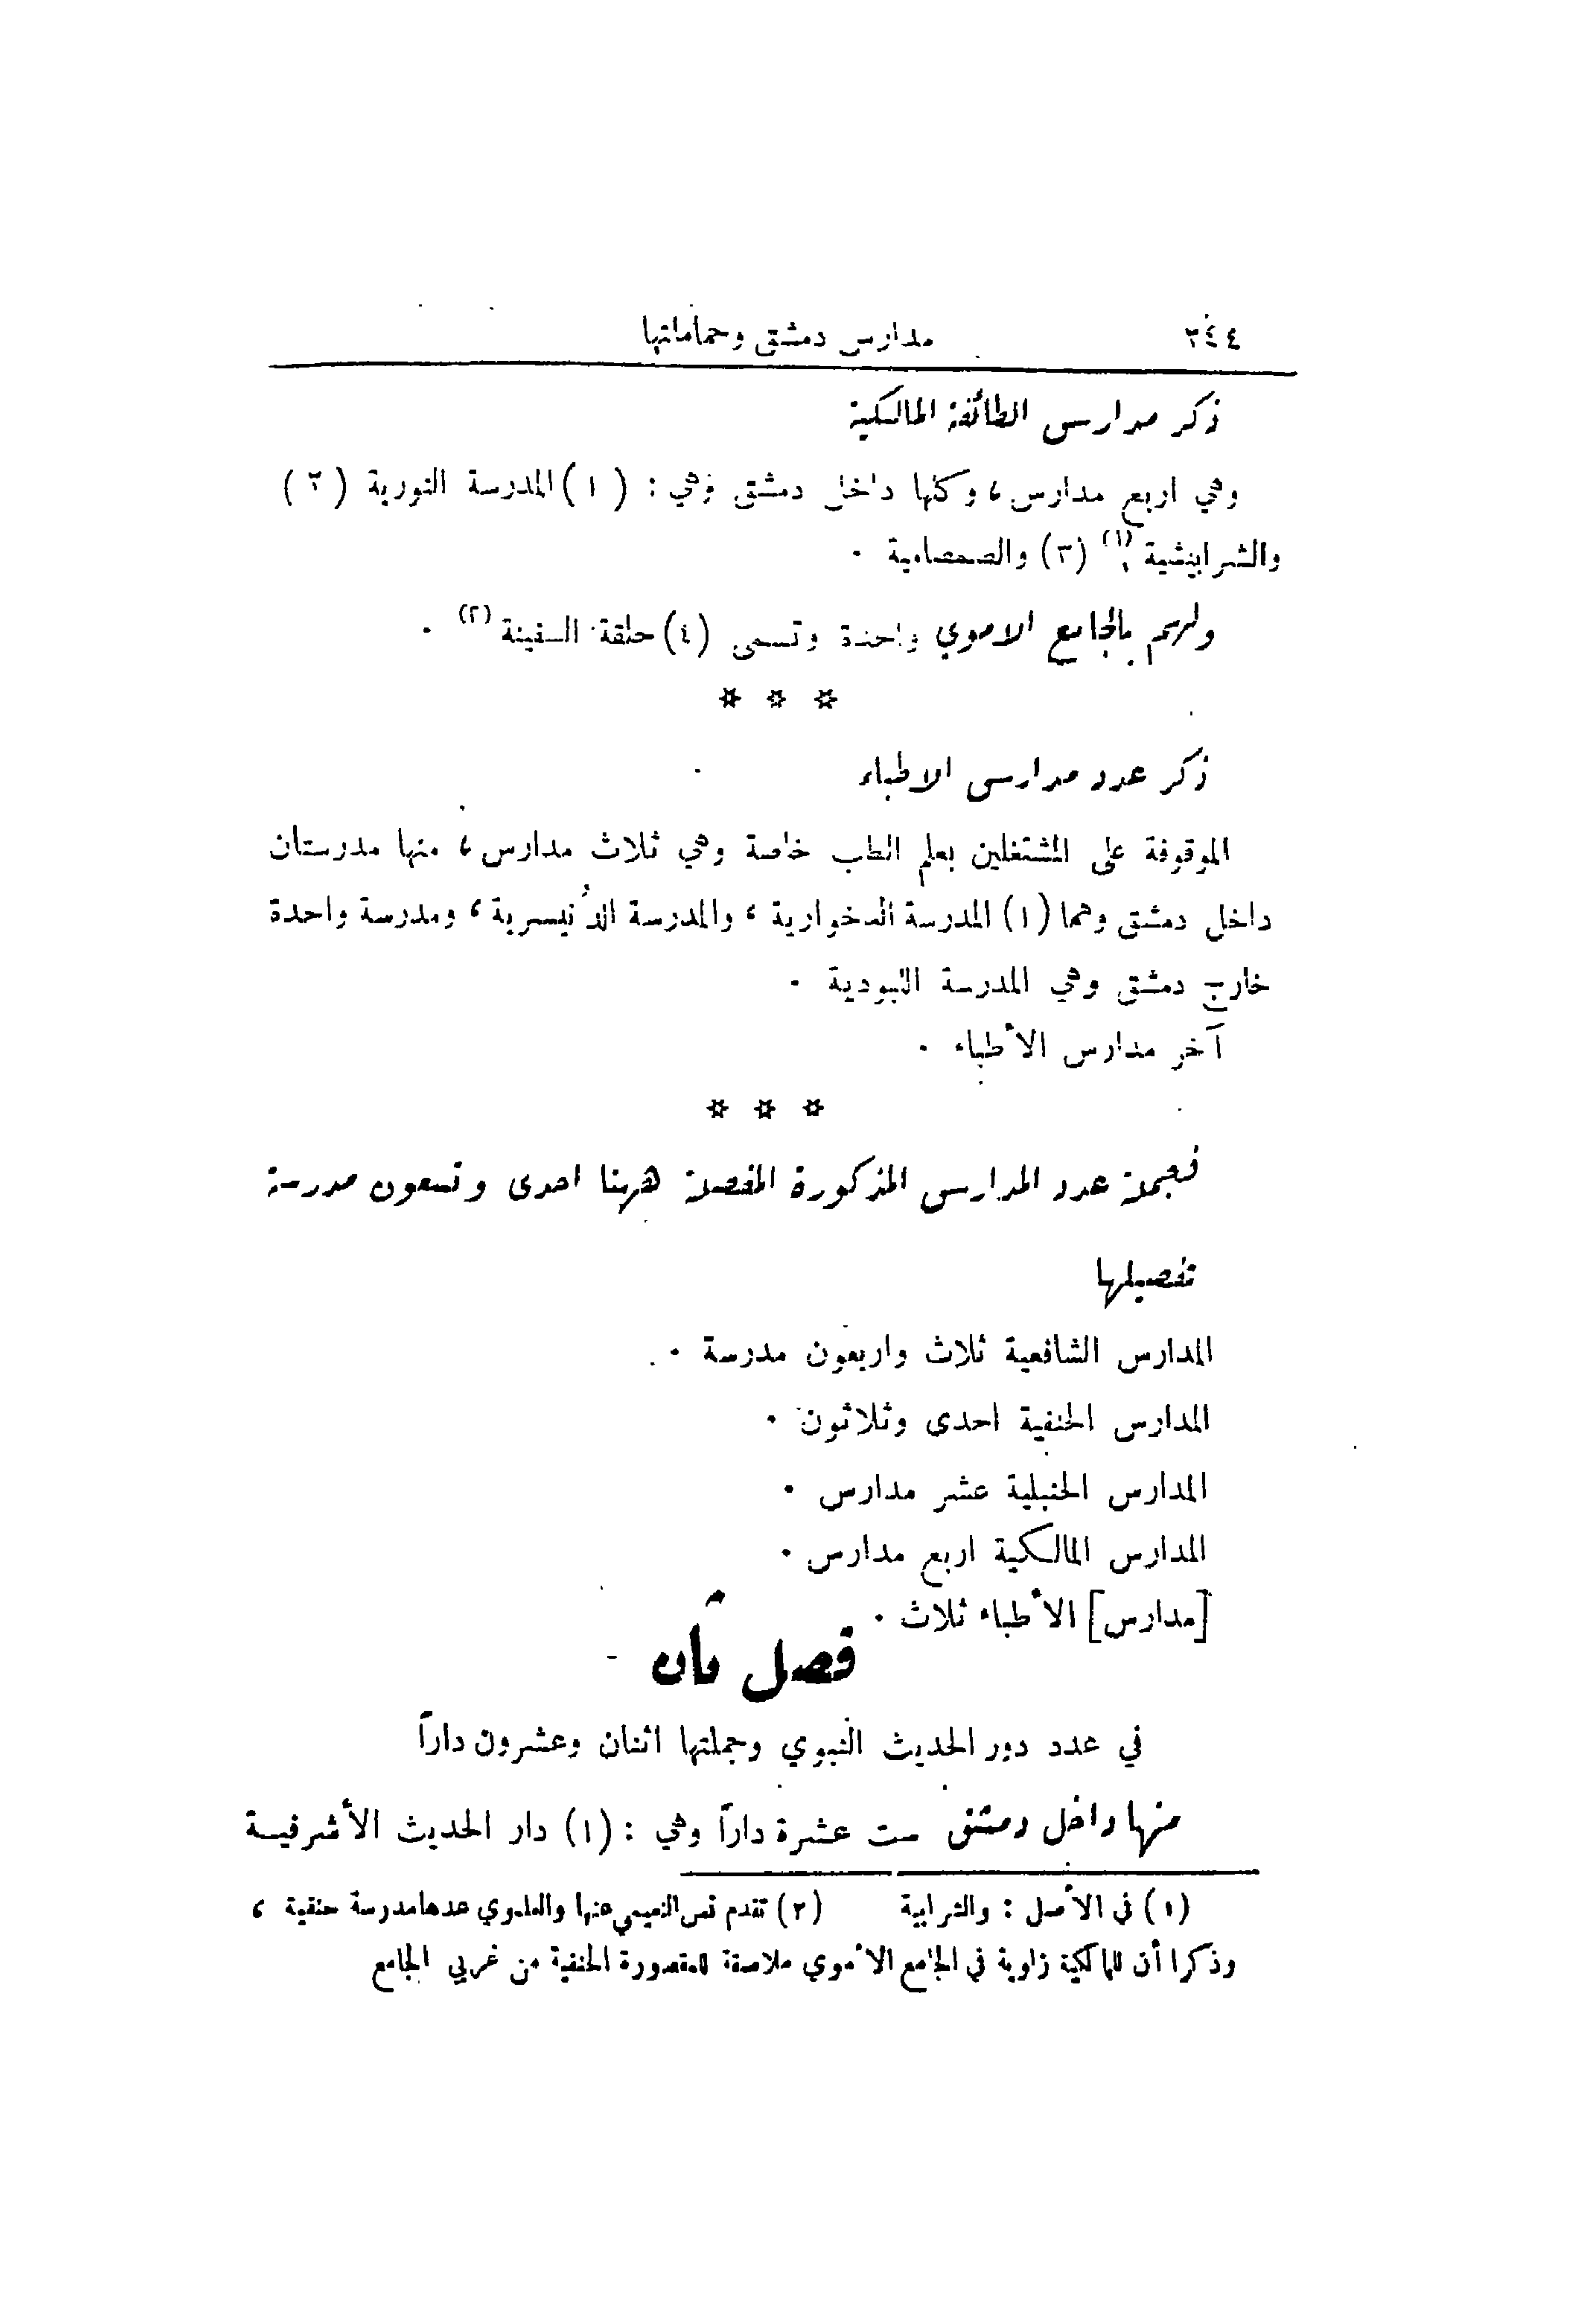 ٢٤٤ مدارس دمشق وحماماتها
ذكر مدارس الطائفة المالكية
وهي اربع مدارس ، وكلها داخل دمشق وهي : ( ١ ) المدرسة النورية ( ٢ )
والشرابيشية (١) (٣) والصمصامية .
ولهم بالجامع الاموي واحدة وتسمى (٤) حلقة السفينة (٢) .
* * *
ذكر عدد مدارس الاطباء
الموقوفة على المشتغلين بعلم الطب خاصة وهي ثلاث مدارس ، منها مدرستان
داخل دمشق وهما (١) المدرسة الدخوارية ، والمدرسة الدُنيسرية ، ومدرسة واحدة
خارج دمشق وهي المدرسة اللبودية .
آخر مدارس الأطباء .
* * *
فجملة عدد المدارس المذكورة المفصلة ههنا احدى وتسعون مدرسة
تفصيلها
المدارس الشافعية ثلاث واربعون مدرسة .
المدارس الحنفية احدى وثلاثون .
المدارس الحنبلية عشر مدارس .
المدارس المالكية اربع مدارس .
[مدارس] الأطباء ثلاث .
فصل ثان
في عدد دور الحديث النبوي وجملتها اثنان وعشرون داراً
منها داخل دمشق ست عشرة داراً وهي : (١) دار الحديث الأشرفيـة
(١) في الأصل : والشرابية (٢) تقدم نص النعيمي عنها والعلموي عدها مدرسة حنفية ،
وذكرا أن للمالكية زاوية في الجامع الأموي ملاصقة للمقصورة الحنفية من غربي الجامع